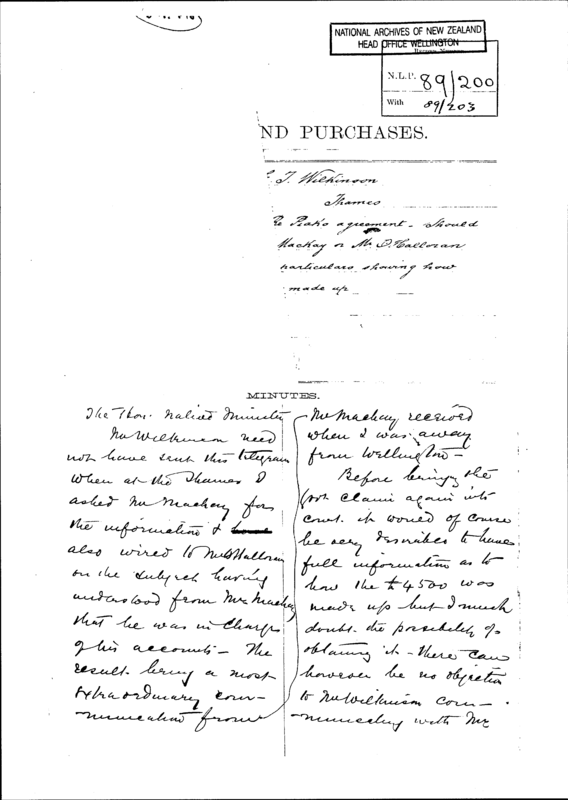 NATIONAL ARCHIVES OF NEW ZEALAND
HEAD OFFICE WELLINGTON
N.L.P. 89/200
With 89/203
ND PURCHASES.
T. Wilkinson
Thames
Re Peak's agreement - Should
Mackay or Mr O'Halloran
particulars showing how
made up
MINUTES.
The Hon. Native Minister
Mr Wilkinson need
not have sent this telegram
When at the Thames I
asked Mr Mackay for
the information &
also wired to Mr O'Halloran
on the subject having
understood from Mr Mackay
that he was in charge
of his accounts - The
result being a most
extraordinary com-
munication from
Mr Mackay received
when I was away
from Wellington -
Before bringing the
claim again into
court it would of course
be very desirable to have
full information as to
how the £4500 was
made up but I much
doubt the possibility of
obtaining it - there can
however be no objection
to Mr Wilkinson com-
municating with Mr